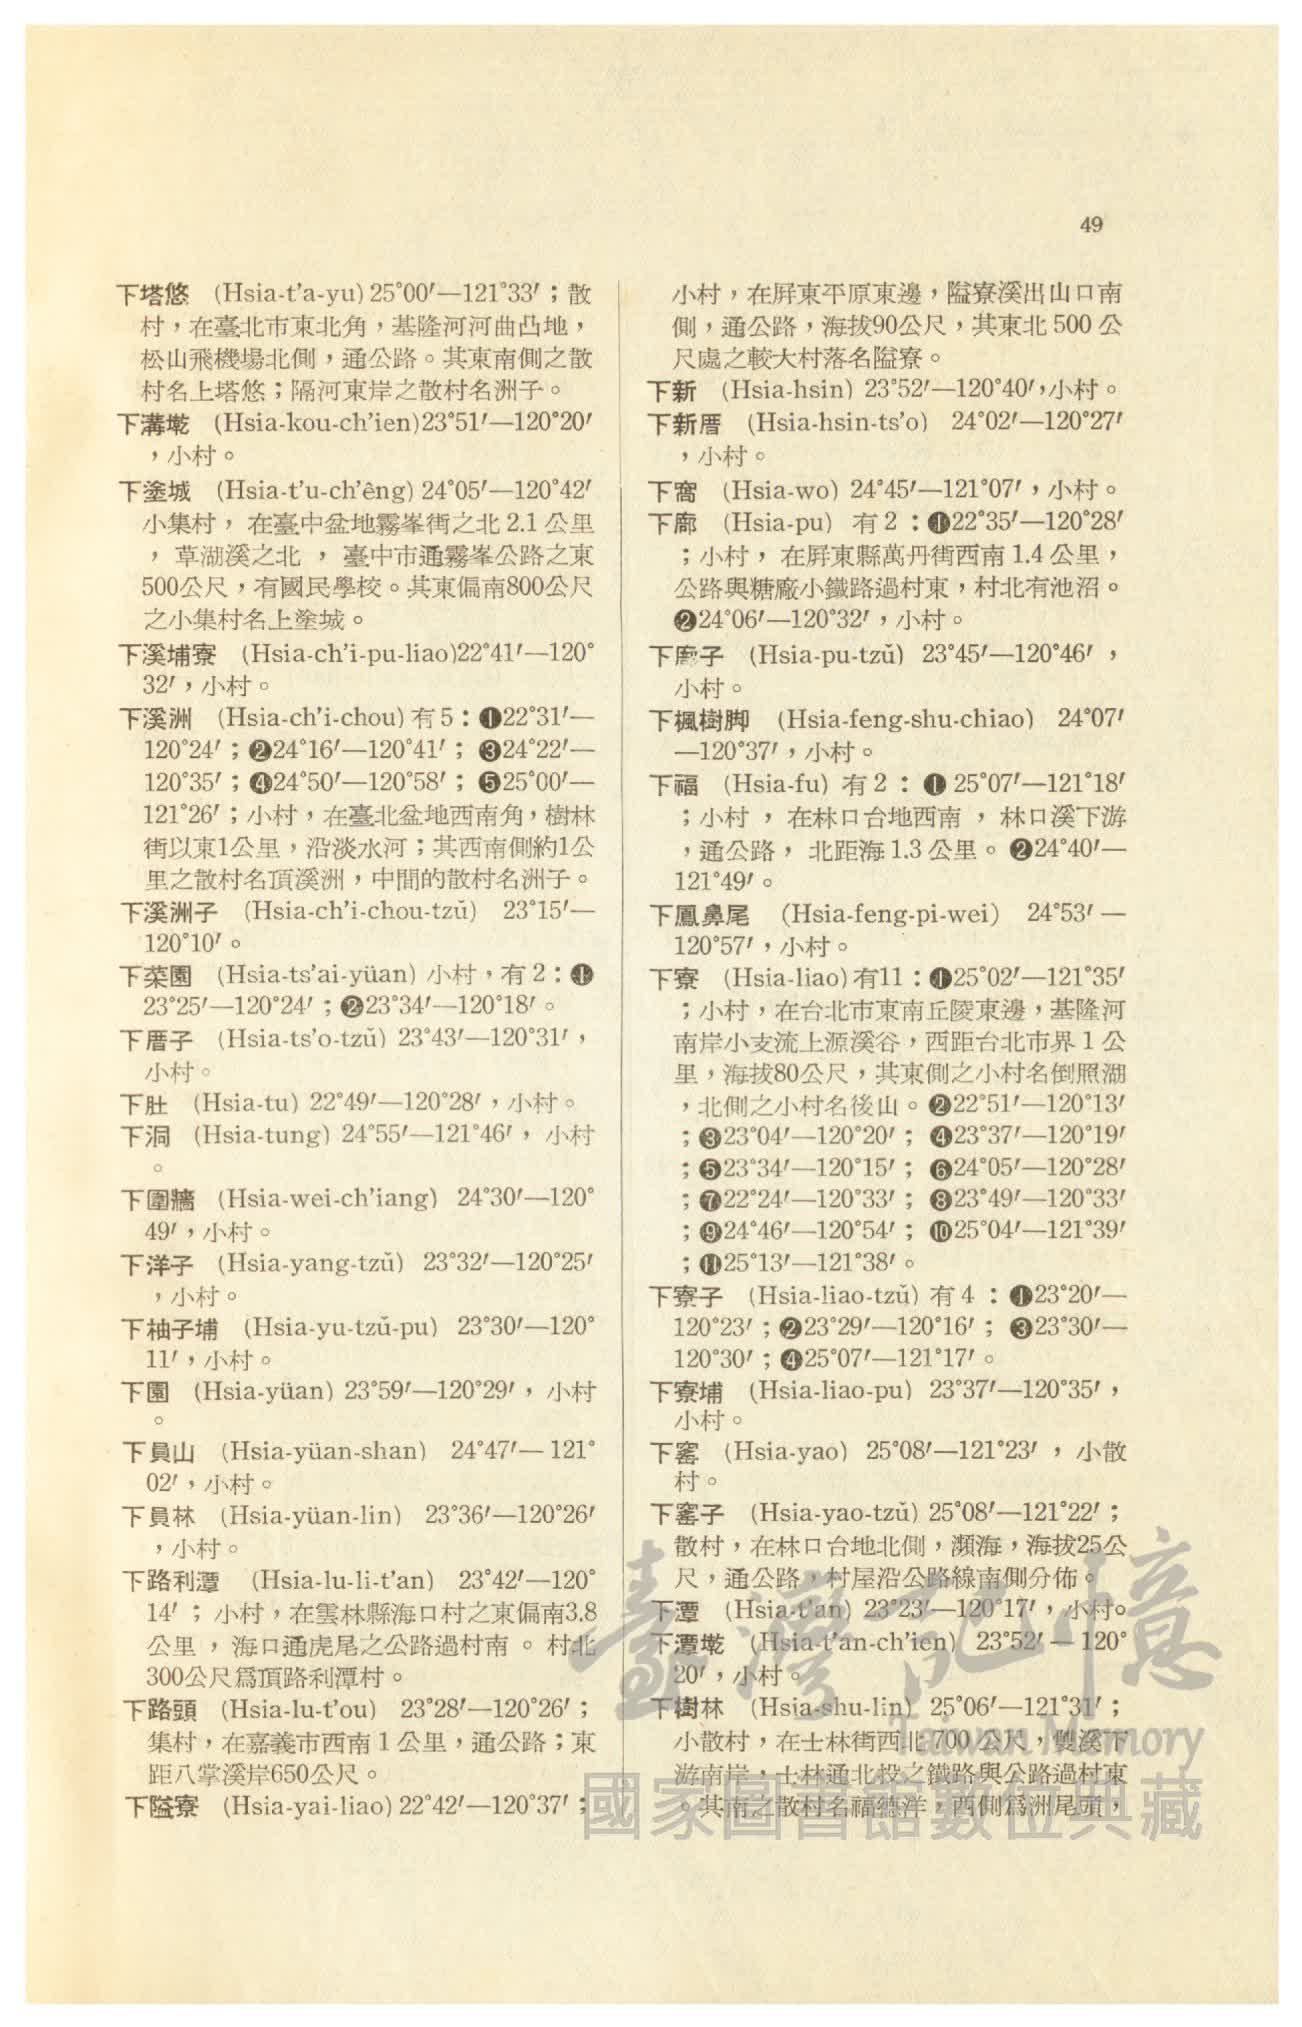 49
下塔悠 (Hsia-t'a-yu) 25°00′—121°33′；散
村，在臺北市東北角，基隆河河曲凸地，
松山飛機場北側，通公路。其東南側之散
村名上塔悠；隔河東岸之散村名洲子。
下溝墘 (Hsia-kou-ch'ien)23°51′—120°20′
，小村。
下塗城 (Hsia-t'u-ch'êng) 24°05′—120°42′
小集村，在臺中盆地霧峯街之北2.1公里
，草湖溪之北，臺中市通霧峯公路之東
500公尺，有國民學校。其東偏南800公尺
之小集村名上塗城。
下溪埔寮 (Hsia-ch'i-pu-liao)22°41′—120°
32′，小村。
下溪洲 (Hsia-ch'i-chou) 有5：❶22°31′—
120°24′；❷24°16′—120°41′；❸24°22′—
120°35′；❹24°50′—120°58′；❺25°00′—
121°26′；小村，在臺北盆地西南角，樹林
街以東1公里，沿淡水河；其西南側約1公
里之散村名頂溪洲，中間的散村名洲子。
下溪洲子 (Hsia-ch'i-chou-tzŭ) 23°15′—
120°10′。
下菜園 (Hsia-ts'ai-yüan) 小村，有2：❶
23°25′—120°24′；❷23°34′—120°18′。
下厝子 (Hsia-ts'o-tzŭ) 23°43′—120°31′，
小村。
下肚 (Hsia-tu) 22°49′—120°28′，小村。
下洞 (Hsia-tung) 24°55′—121°46′，小村
。
下圍牆 (Hsia-wei-ch'iang) 24°30′—120°
49′，小村。
下洋子 (Hsia-yang-tzŭ) 23°32′—120°25′
，小村。
下柚子埔 (Hsia-yu-tzŭ-pu) 23°30′—120°
11′，小村。
下園 (Hsia-yüan) 23°59′—120°29′，小村
。
下員山 (Hsia-yüan-shan) 24°47′—121°
02′，小村。
下員林 (Hsia-yüan-lin) 23°36′—120°26′
，小村。
下路利潭 (Hsia-lu-li-t'an) 23°42′—120°
14′；小村，在雲林縣海口村之東偏南3.8
公里，海口通虎尾之公路過村南。村北
300公尺爲頂路利潭村。
下路頭 (Hsia-lu-t'ou) 23°28′—120°26′；
集村，在嘉義市西南1公里，通公路；東
距八掌溪岸650公尺。
下隘寮 (Hsia-yai-liao) 22°42′—120°37′；
小村，在屏東平原東邊，隘寮溪出山口南
側，通公路，海拔90公尺，其東北500公
尺處之較大村落名隘寮。
下新 (Hsia-hsin) 23°52′—120°40′，小村。
下新厝 (Hsia-hsin-ts'o) 24°02′—120°27′
，小村。
下窩 (Hsia-wo) 24°45′—121°07′，小村。
下廍 (Hsia-pu) 有2：❶22°35′—120°28′
；小村，在屏東縣萬丹街西南1.4公里，
公路與糖廠小鐵路過村東，村北有池沼。
❷24°06′—120°32′，小村。
下廍子 (Hsia-pu-tzŭ) 23°45′—120°46′，
小村。
下楓樹脚 (Hsia-feng-shu-chiao) 24°07′
—120°37′，小村。
下福 (Hsia-fu) 有2：❶25°07′—121°18′
；小村，在林口台地西南，林口溪下游
，通公路，北距海1.3公里。❷24°40′—
121°49′。
下鳳鼻尾 (Hsia-feng-pi-wei) 24°53′—
120°57′，小村。
下寮 (Hsia-liao) 有11：❶25°02′—121°35′
；小村，在台北市東南丘陵東邊，基隆河
南岸小支流上源溪谷，西距台北市界1公
里，海拔80公尺，其東側之小村名倒照湖
，北側之小村名後山。❷22°51′—120°13′
；❸23°04′—120°20′；❹23°37′—120°19′
；❺23°34′—120°15′；❻24°05′—120°28′
；❼22°24′—120°33′；❽23°49′—120°33′
；❾24°46′—120°54′；❿25°04′—121°39′
；⓫25°13′—121°38′。
下寮子 (Hsia-liao-tzŭ) 有4：❶23°20′—
120°23′；❷23°29′—120°16′；❸23°30′—
120°30′；❹25°07′—121°17′。
下寮埔 (Hsia-liao-pu) 23°37′—120°35′，
小村。
下窰 (Hsia-yao) 25°08′—121°23′，小散
村。
下窰子 (Hsia-yao-tzŭ) 25°08′—121°22′；
散村，在林口台地北側，瀕海，海拔25公
尺，通公路，村屋沿公路線南側分佈。
下潭 (Hsia-t'an) 23°23′—120°17′，小村。
下潭墘 (Hsia-t'an-ch'ien) 23°52′—120°
20′，小村。
下樹林 (Hsia-shu-lin) 25°06′—121°31′；
小散村，在士林街西北700公尺，雙溪下
游南岸，士林通北投之鐵路與公路過村東
。其南之散村名福德洋，西側爲洲尾頭，
臺灣記憶
Taiwan Memory
國家圖書館數位典藏